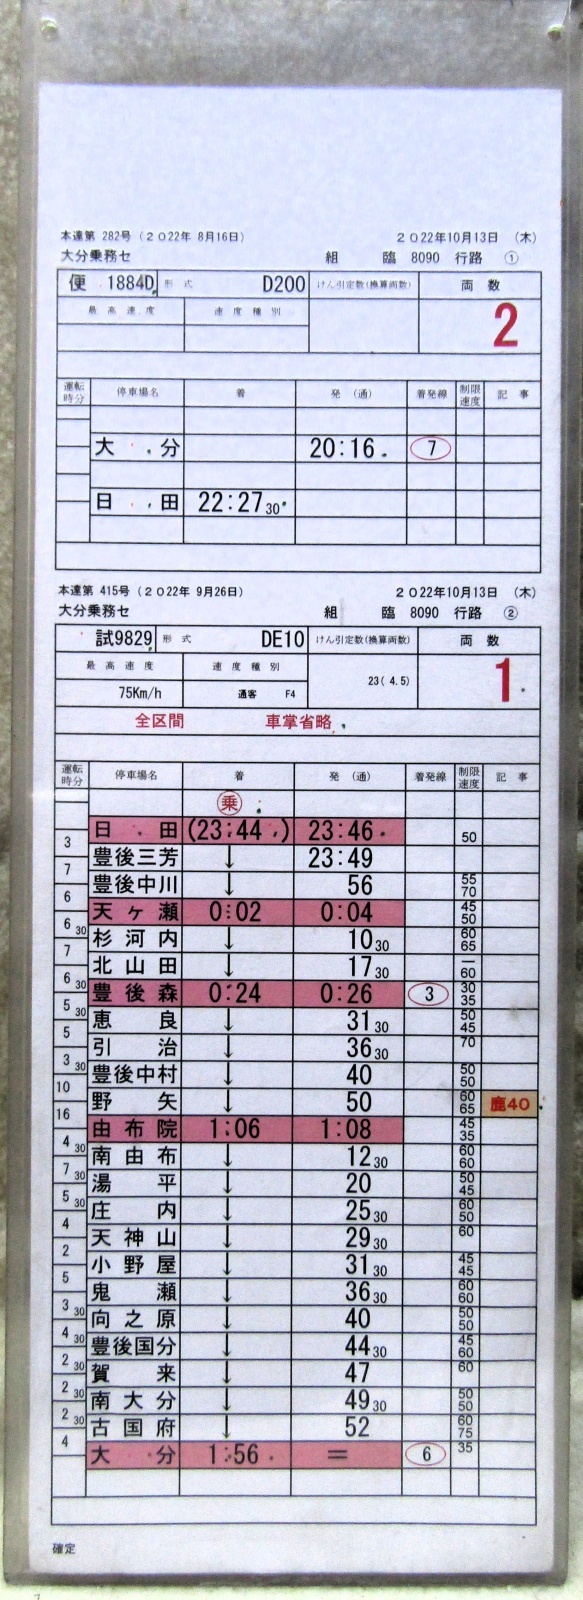 本達第 282号 (2022年 8月16日) 2022年10月13日 (木)
大分乗務セ 組 臨 8090 行路 ①
便 1884D 形式 D200 けん引定数(換算両数) 両数
最高速度 速度種別 2
運転時分 停車場名 着 発(通) 着発線 制限速度 記事
大分 20:16 7
日田 22:27 30
本達第 415号 (2022年 9月26日) 2022年10月13日 (木)
大分乗務セ 組 臨 8090 行路 ②
試9829 形式 DE10 けん引定数(換算両数) 両数
最高速度 速度種別 23(4.5) 1
75Km/h 通客 F4
全区間 車掌省略
運転時分 停車場名 着 発(通) 着発線 制限速度 記事
乗
日田 (23:44) 23:46 50
3
豊後三芳 ↓ 23:49
7
豊後中川 ↓ 56 55 70
6
天ヶ瀬 0:02 0:04 45 50
6 30
杉河内 ↓ 10 30 60 65
7
北山田 ↓ 17 30 — 60
6 30
豊後森 0:24 0:26 3 30 35
5 30
恵良 ↓ 31 30 50 45
5
引治 ↓ 36 30 70
3 30
豊後中村 ↓ 40 50 50
10
野矢 ↓ 50 60 65 鹿40
16
由布院 1:06 1:08 45 35
4 30
南由布 ↓ 12 30 60 60
7 30
湯平 ↓ 20 50 45
5 30
庄内 ↓ 25 30 60 50
4
天神山 ↓ 29 30 60
2
小野屋 ↓ 31 30 45 45
5
鬼瀬 ↓ 36 30 60 60
3 30
向之原 ↓ 40 50 50
4 30
豊後国分 ↓ 44 30 45 60
2 30
賀来 ↓ 47 60
2 30
南大分 ↓ 49 30 50 50
2 30
古国府 ↓ 52 60 75
4
大分 1:56 = 6 35
確定